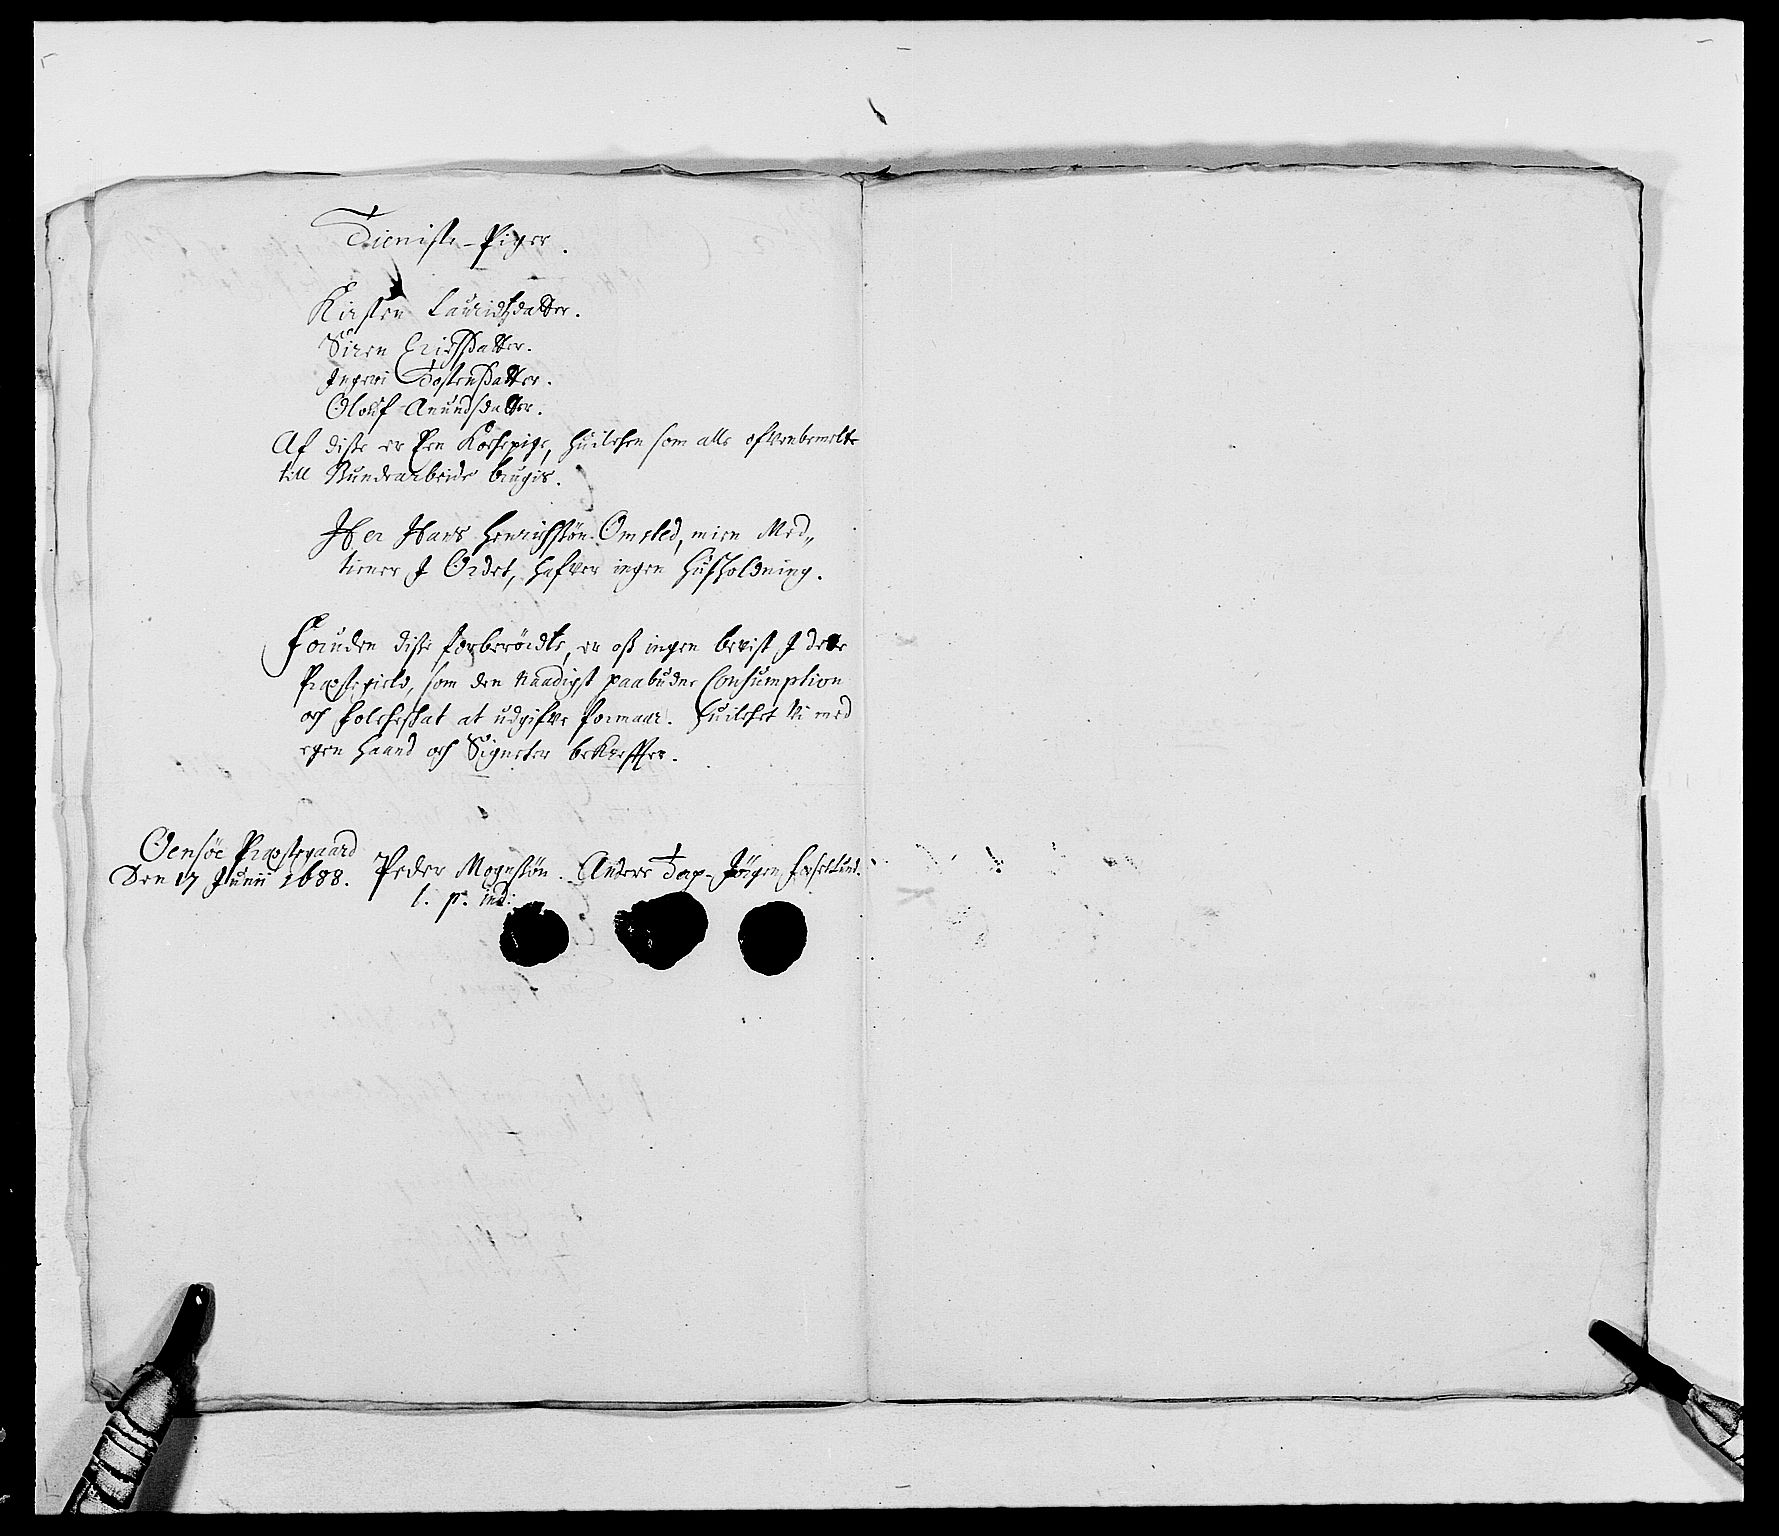 Tieniste-Piger.
Kirsten Lauridtzdatter.
Siren Erichsdatter.
Ingeri Tostensdatter.
Olouf Anundsdatter.
Af disse er Een Kochepige, huilchen som alle ofvenbemelte
till Bundearbeide brugis.
Her Hans Henrichssøn Omsted, mien Med-
tiener J Ordet, hafver ingen huusholdning.
Foruden disse forberørdte, er oss ingen bevist J dette
Præstegield, som den Naadigst paabudne Consumption
och folcheskat at udgifve formaar. Huilchet Vi med
egen Haand och Signeter bekræffter.
Oensøe Præstegaard
Den 17 Junii 1688.
Peder Mognssøn. Anders Tap- Jørgen